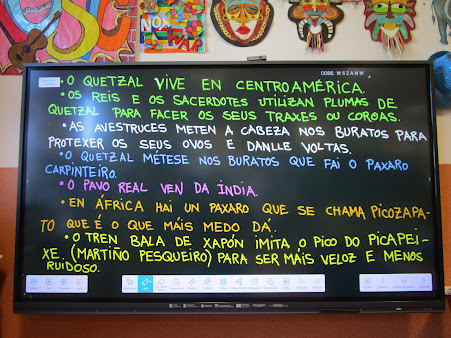 CODE: W52ANW
• O QUETZAL VIVE EN CENTROAMÉRICA.
• OS REIS E OS SACERDOTES UTILIZAN PLUMAS DE
QUETZAL PARA FACER OS SEUS TRAXES OU COROAS.
• AS AVESTRUCES METEN A CABEZA NOS BURATOS PARA
PROTEXER OS SEUS OVOS E DANLLE VOLTAS.
• O QUETZAL MÉTESE NOS BURATOS QUE FAI O PAXARO
CARPINTEIRO.
• O PAVO REAL VEN DA ÍNDIA.
• EN ÁFRICA HAI UN PAXARO QUE SE CHAMA PICOZAPA-
TO QUE É O QUE MÁIS MEDO DÁ.
• O TREN BALA DE XAPÓN IMITA O PICO DO PICAPEI-
XE (MARTIÑO PESQUEIRO) PARA SER MÁIS VELOZ E MENOS
RUIDOSO.